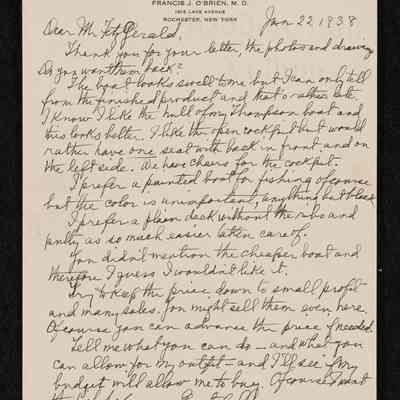 FRANCIS J. O'BRIEN, M. D.
1815 LAKE AVENUE
ROCHESTER, NEW YORK
Jan 22 1938
Dear Mr. FitzGerald,
Thank you for your letter, the photos and drawing
Do you want them back?
The boat looks swell to me but I can only tell
from the finished product and that's rather late.
I know I like the hull of my Thompson boat and
this looks better. I like the open cockpit but would
rather have one seat with back in front and on
the left side. We have chairs for the cockpit.
I prefer a painted boat for fishing of course
but the color is unimportant, anything but black
I prefer a plain deck without the ribs and
putty as so much easier taken care of.
You didn't mention the cheaper boat and
therefore I guess I wouldn't like it.
Try to keep the price down to small profit
and many sales. You might sell them even, here.
Of course you can advance the price if needed.
Tell me what you can do – and what you
can allow for my outfit – and I'll see if my
budget will allow me to buy. Of course I want